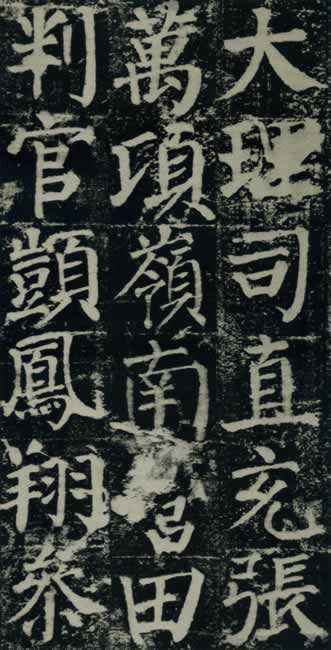 大理司直充張
萬頃嶺南田
判官顗鳳翔叅